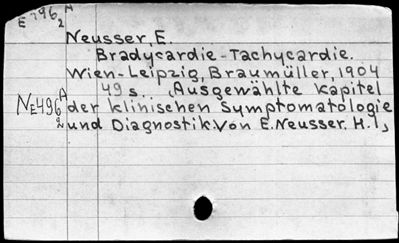 E 796 A
2
Neusser, E.
Bradycardie-Tachycardie.
Wien-Leipzig, Braumüller, 1904
49 s. (Ausgewählte Kapitel
NE496 A
2
der klinischen Symptomatologie
und Diagnostik. Von E. Neusser. H. 1)